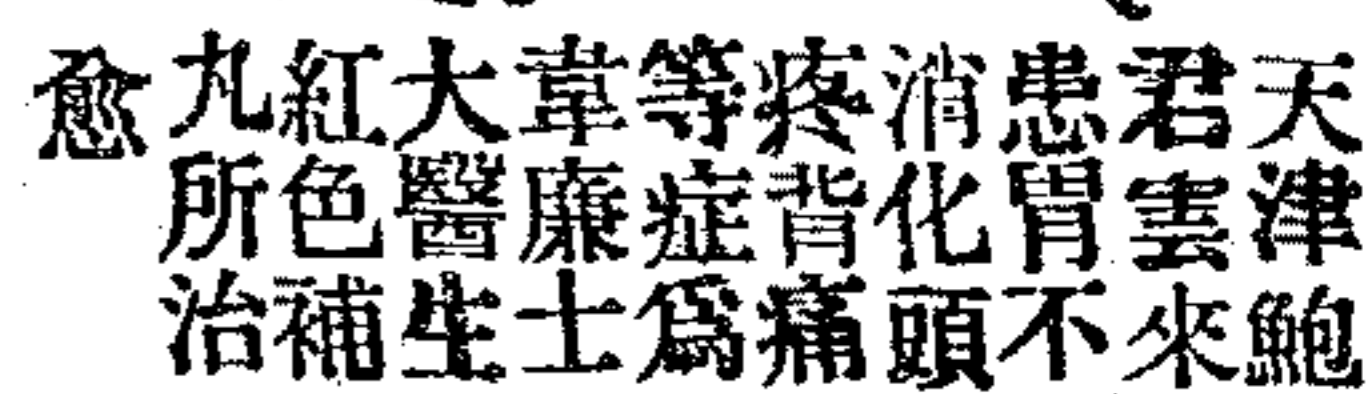 天津鮑
君雲來
患胃不
消化頭
疼背痛
等症為
韋廉士
大醫生
紅色補
丸所治
愈